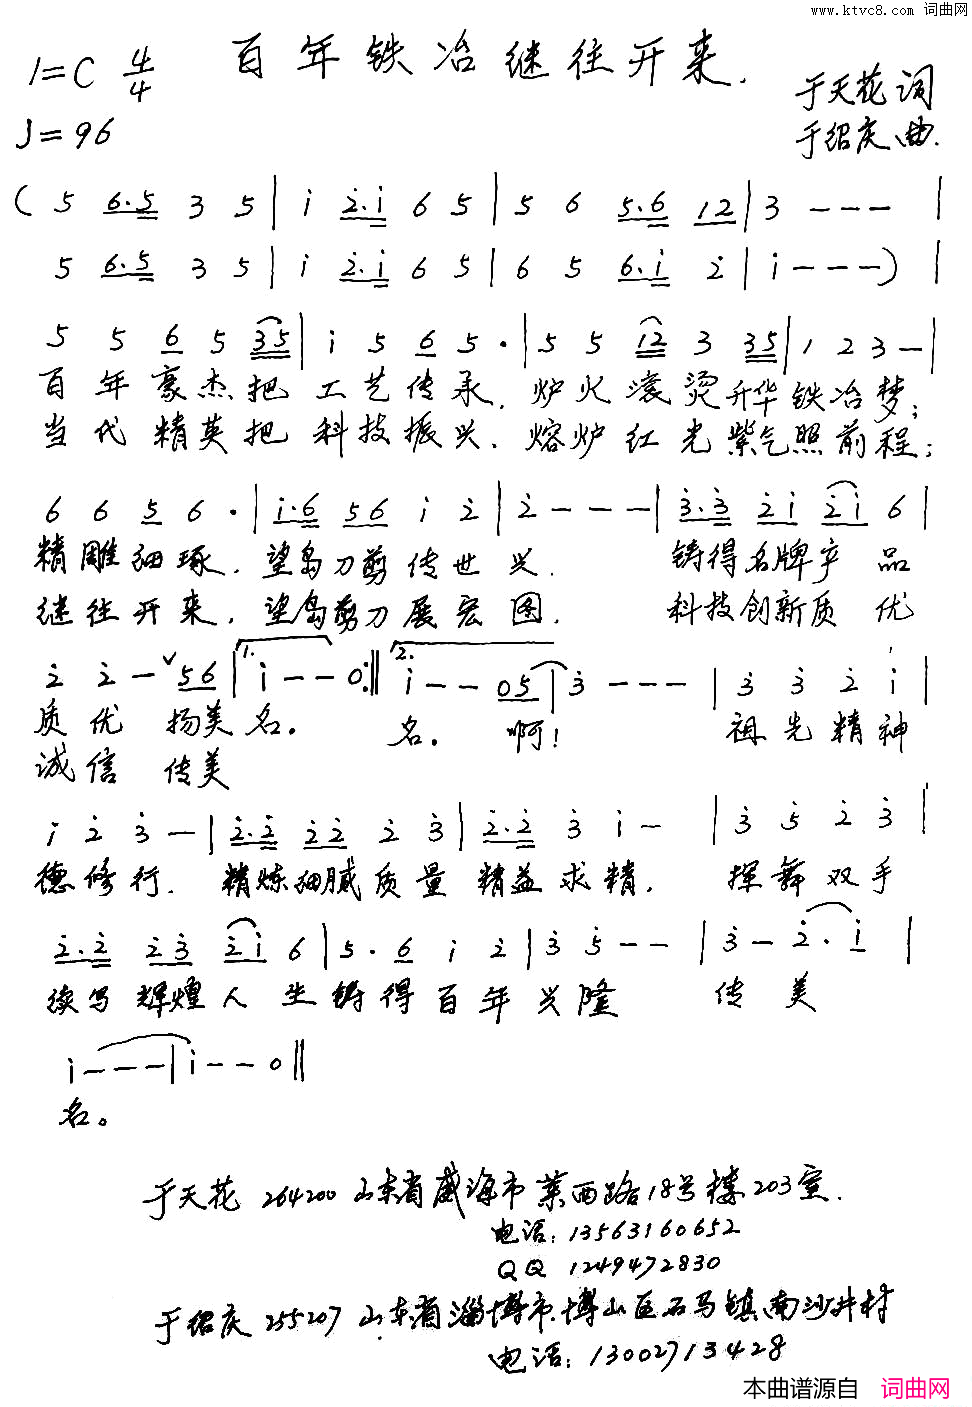 www.ktvc8.com 词曲网
1=C 4/4 百年铁冶继往开来.
♩=96
于天花 词
于绍庆 曲.
( 5 6.5 3 5 | i 2.i 6 5 | 5 6 5.6 12 | 3 - - - |
5 6.5 3 5 | i 2.i 6 5 | 6 5 6.i 2 | i - - - ) |
5 5 6 5 35 | i 5 6 5 · | 5 5 12 3 35 | 1 2 3 - |
百年豪杰把工艺传承. 炉火滚烫升华铁冶梦;
当代精英把科技振兴. 熔炉红光紫气照前程;
6 6 5 6 · | i.6 56 i 2 | 2 - - - | 3.3 2i 2i 6 |
精雕细琢. 望岛刀剪传世兴. 铸得名牌产品
继往开来. 望岛剪刀展宏图. 科技创新质优
2 2 - ∨ 56 | 1. i - - 0 :‖ 2. i - - 05 | 3 - - - | 3 3 2 i |
质优 扬美名。 名。 啊! 祖先精神
诚信 传美
i 2 3 - | 2.2 22 2 3 | 2.2 3 i - | 3 5 2 3 |
德修行. 精炼细腻质量精益求精. 挥舞双手
2.2 23 2i 6 | 5. 6 i 2 | 3 5 - - | 3 - 2. i |
续写辉煌人生铸得百年兴隆 传美
i - - - | i - - 0 ‖
名。
于天花 264200 山东省威海市莱西路18号楼203室.
电话: 13563160652
QQ 1249472830
于绍庆 255207 山东省淄博市博山区石马镇南沙井村
电话: 13002713428
本曲谱源自 词曲网